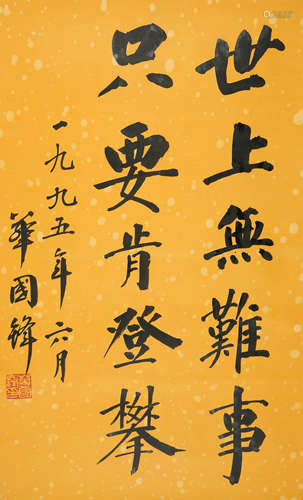 世上無難事
只要肯登攀
一九九五年六月
華國鋒